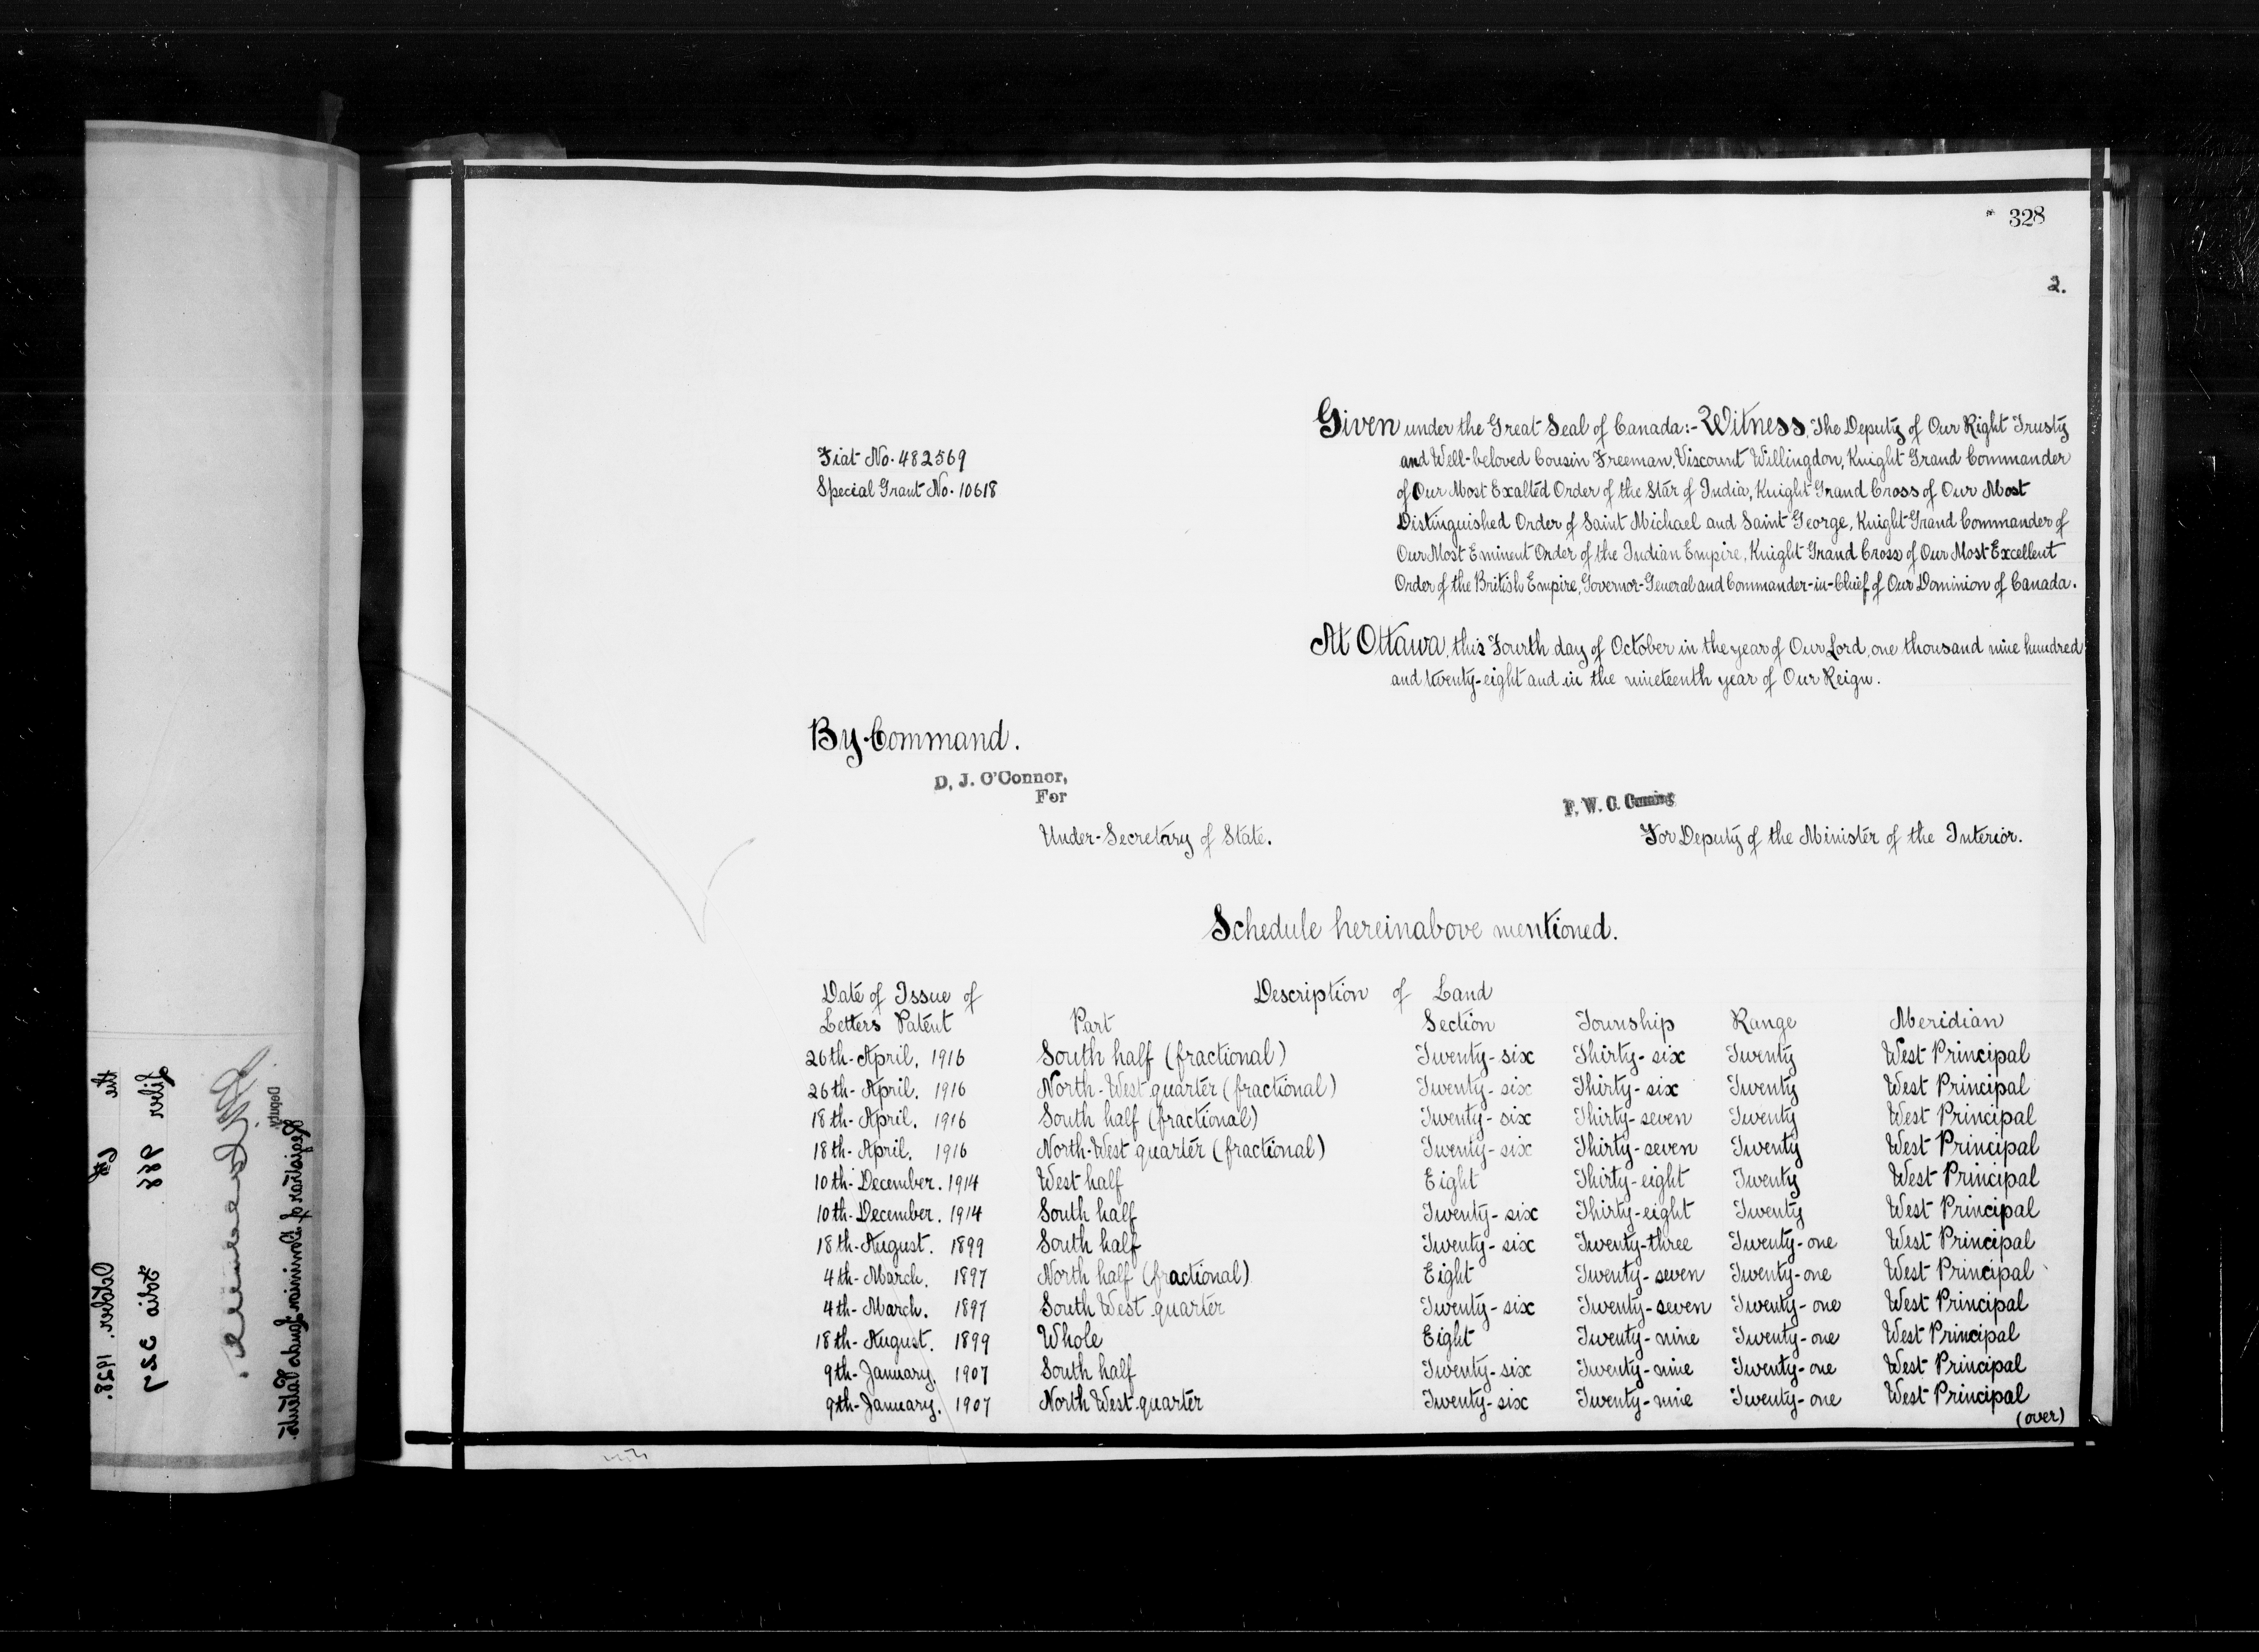 328
2.
Fiat No. 482569
Special Grant No. 10618
Given under the Great Seal of Canada:- Witness, The Deputy of Our Right Trusty
and Well-beloved Cousin Freeman, Viscount Willingdon, Knight Grand Commander
of Our Most Exalted Order of the Star of India, Knight Grand Cross of Our Most
Distinguished Order of Saint Michael and Saint George, Knight Grand Commander of
Our Most Eminent Order of the Indian Empire, Knight Grand Cross of Our Most Excellent
Order of the British Empire, Governor-General and Commander-in-Chief of Our Dominion of Canada.
At Ottawa, this Fourth day of October in the year of Our Lord, one thousand nine hundred
and twenty-eight and in the nineteenth year of Our Reign.
By Command.
D. J. O'Connor,
For
Under-Secretary of State.
F. W. C. Cuming
For Deputy of the Minister of the Interior.
Schedule hereinabove mentioned.
Date of Issue of Description of Land
Letters Patent Part Section Township Range Meridian
26th-April, 1916 South half (fractional) Twenty-six Thirty-six Twenty West Principal
26th-April, 1916 North-West quarter (fractional) Twenty-six Thirty-six Twenty West Principal
18th-April, 1916 South half (fractional) Twenty-six Thirty-seven Twenty West Principal
18th-April, 1916 North-West quarter (fractional) Twenty-six Thirty-seven Twenty West Principal
10th-December. 1914 West half Eight Thirty-eight Twenty West Principal
10th-December. 1914 South half Twenty-six Thirty-eight Twenty West Principal
18th-August. 1899 South half Twenty-six Twenty-three Twenty-one West Principal
4th-March. 1897 North half (fractional) Eight Twenty-seven Twenty-one West Principal
4th-March. 1897 South West quarter Twenty-six Twenty-seven Twenty-one West Principal
18th-August. 1899 Whole Eight Twenty-nine Twenty-one West Principal
9th-January. 1907 South half Twenty-six Twenty-nine Twenty-one West Principal
9th-January. 1907 North West quarter Twenty-six Twenty-nine Twenty-one West Principal
(over)
the 6th October. 1928.
Liber 988 Folio 327
Deputy
Registrar of Dominion Lands Patents.